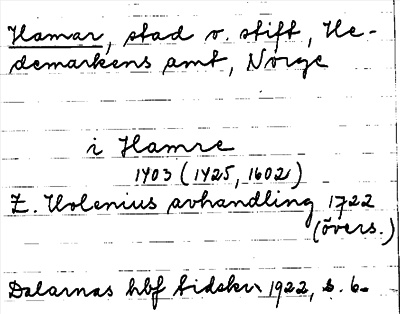 Hamar, stad o. stift, He-
demarkens amt, Norge
i Hamre
1403 (1425, 1602)
Z. Holenius avhandling 1722
(övers.)
Dalarnas hbf tidskr 1922, s. 6